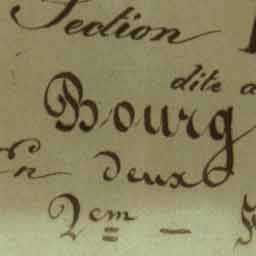 Section
dite a
Bourg
En deux
2em -